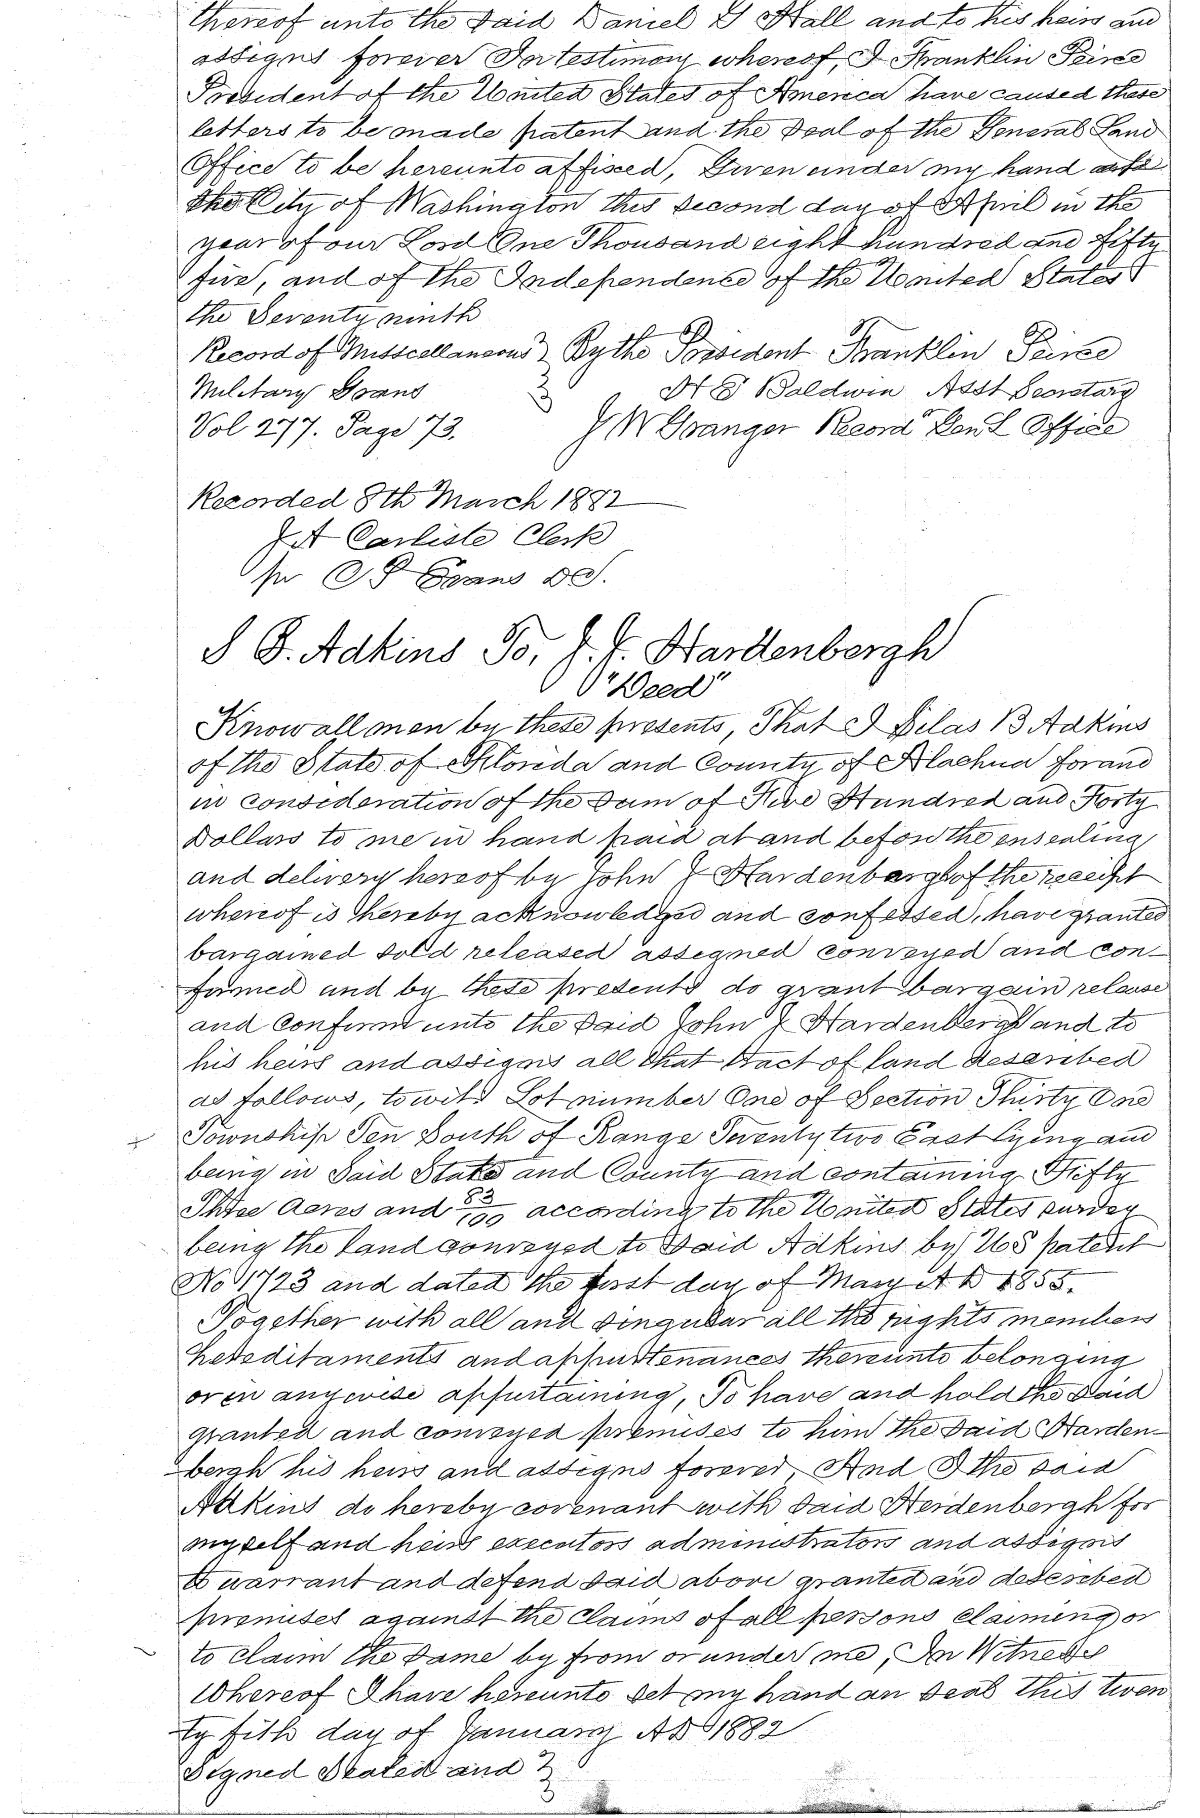 thereof unto the said Daniel G Hall and to his heirs and
assigns forever In testimony whereof, I Franklin Peirce
President of the United States of America have caused these
letters to be made patent and the seal of the General Land
Office to be hereunto affixed, Given under my hand at
the City of Washington this second day of April in the
year of our Lord One Thousand eight hundred and fifty
five, and of the Independence of the United States
the Seventy ninth
Record of Misscellaneous } By the President Franklin Peirce
Military Grans } H E Baldwin Asst Secretary
Vol 277. Page 73. J W Granger Record" Gen L Office
Recorded 8th March 1882
J A Carlisle Clerk
pr C P Evans D C.
S B. Adkins To, J. J. Hardenbergh
"Deed"
Know all men by these presents, That I Silas B Adkins
of the State of Florida and County of Alachua for and
in consideration of the sum of Five Hundred and Forty
Dollars to me in hand paid at and before the ensealing
and delivery hereof by John J Hardenbergh of the receipt
whereof is hereby acknowledged and confessed, have granted
bargained sold released assigned conveyed and con-
firmed and by these presents do grant bargain release
and confirm unto the said John J Hardenbergh and to
his heirs and assigns all that tract of land described
as follows, to wit: Lot number One of Section Thirty One
Township Ten South of Range Twenty two East lying and
being in Said State and County and containing Fifty
Three Acres and 83/100 according to the United States survey
being the land conveyed to said Adkins by U S patent
No 1723 and dated the first day of May A D 1855.
Together with all and singular all the rights members
hereditaments and appurtenances thereunto belonging
or in anywise appurtaining, To have and hold the said
granted and conveyed premises to him the said Harden-
bergh his heirs and assigns forever, And I the said
Adkins do hereby covenant with said Herdenbergh for
myself and heirs executors administrators and assigns
to warrant and defend said above granted and described
premises against the claims of all persons claiming or
to claim the same by from or under me, In Witness
Whereof I have hereunto set my hand an seal this twen
ty fith day of January A D 1882
Signed Sealed and }